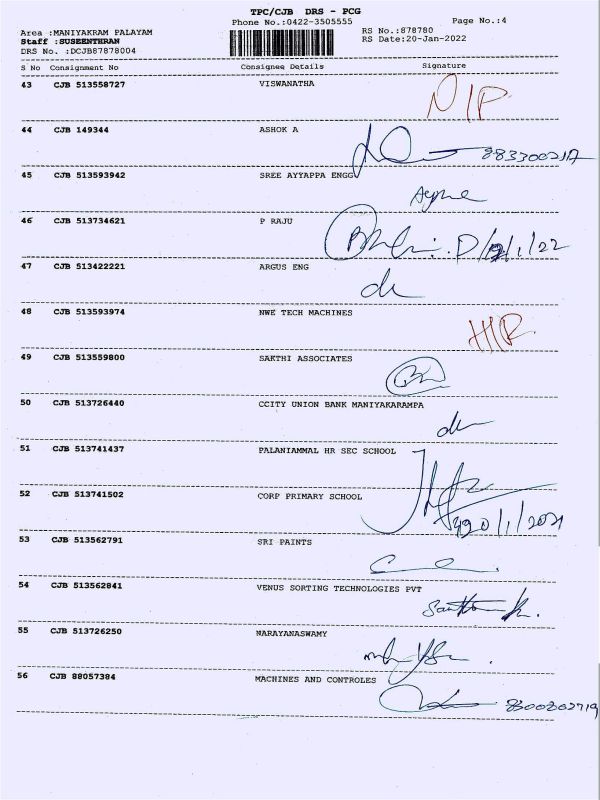 TPC/CJB DRS - PCG
Phone No.:0422-3505555
Page No.:4
Area :MANIYAKRAM PALAYAM
RS No.:878780
Staff :SUSEENTHRAN
RS Date:20-Jan-2022
DRS No. :DCJB87878004
S No Consignment No Consignee Details Signature
43 CJB 513558727 VISWANATHA
44 CJB 149344 ASHOK A
45 CJB 513593942 SREE AYYAPPA ENGG
46 CJB 513734621 P RAJU
47 CJB 513422221 ARGUS ENG
48 CJB 513593974 NWE TECH MACHINES
49 CJB 513559800 SAKTHI ASSOCIATES
50 CJB 513726440 CCITY UNION BANK MANIYAKARAMPA
51 CJB 513741437 PALANIAMMAL HR SEC SCHOOL
52 CJB 513741502 CORP PRIMARY SCHOOL
53 CJB 513562791 SRI PAINTS
54 CJB 513562841 VENUS SORTING TECHNOLOGIES PVT
55 CJB 513726250 NARAYANASWAMY
56 CJB 88057384 MACHINES AND CONTROLES